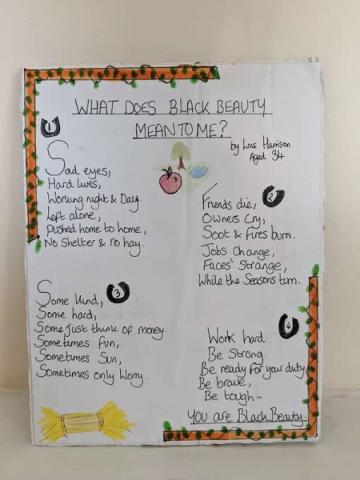 WHAT DOES BLACK BEAUTY
MEAN TO ME?
by Lois Harrison
Aged 34
1
Sad eyes,
Hard lives,
Working night & Day.
Left alone,
Pushed home to home,
No Shelter & No hay.
2
Friends die,
Owners Cry,
Soot & Fires burn.
Jobs Change,
Faces' Strange,
While the Seasons turn.
3
Some Kind,
Some hard,
Some Just think of money.
Sometimes fun,
Sometimes Sun,
Sometimes only Worry.
4
Work hard
Be Strong
Be ready for your duty
Be brave,
Be tough -
You are Black Beauty.